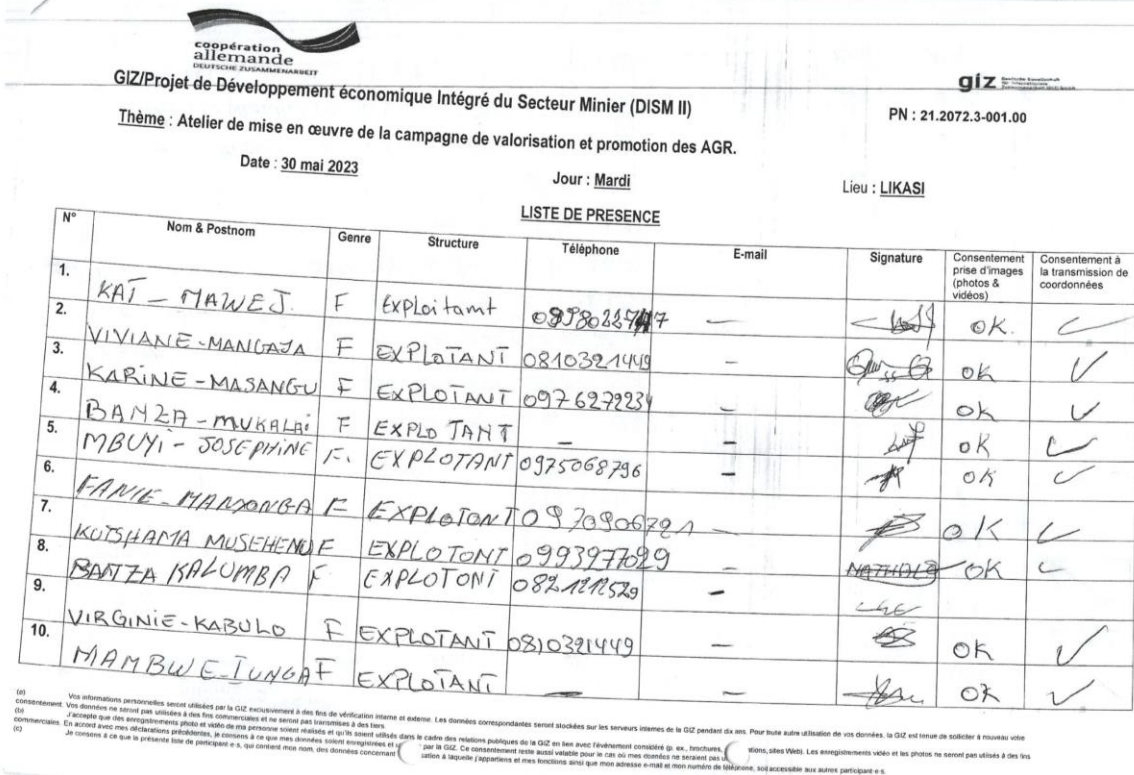 coopération
allemande
DEUTSCHE ZUSAMMENARBEIT
giz Deutsche Gesellschaft für Internationale Zusammenarbeit (GIZ) GmbH
GIZ/Projet de Développement économique Intégré du Secteur Minier (DISM II)
PN : 21.2072.3-001.00
Thème : Atelier de mise en œuvre de la campagne de valorisation et promotion des AGR.
Date : 30 mai 2023 Jour : Mardi Lieu : LIKASI
LISTE DE PRESENCE
N° Nom & Postnom Genre Structure Téléphone E-mail Signature Consentement prise d'images (photos & vidéos) Consentement à la transmission de coordonnées
1. KAT - MAWEJ. F Exploitamt - OK. ✓
2. VIVIANE-MANGAJA F EXPLOTANT 0810321449 - OK ✓
3. KARINE-MASANGU F EXPLOTANT 0976272234 - OK ✓
4. BANZA-MUKALAi F EXPLOTANT - - OK ✓
5. MBUYi-JOSEPHINE F. EXPLOTANT 0975068796 - OK ✓
6. FANIE-MANSONGA F EXPLOTONT 0970906721 - OK ✓
7. KUTSHAMA MUSEHENU F EXPLOTONT 0993977029 OK ✓
8. BANZA KALUMBA F EXPLOTONT 0821212529 -
9. VIRGINIE-KABULO F EXPLOTANT 0810321449 - OK ✓
10. MAMBWE-TUNGA F EXPLOTANT - - OK ✓
(a) Vos informations personnelles seront utilisées par la GIZ exclusivement à des fins de vérification interne et externe. Les données correspondantes seront stockées sur les serveurs internes de la GIZ pendant dix ans. Pour toute autre utilisation de vos données, la GIZ est tenue de solliciter à nouveau votre
consentement. Vos données ne seront pas utilisées à des fins commerciales et ne seront pas transmises à des tiers.
(b) J'accepte que des enregistrements photo et vidéo de ma personne soient réalisés et qu'ils soient utilisés dans le cadre des relations publiques de la GIZ en lien avec l'événement considéré (p. ex., brochures, tions, sites Web). Les enregistrements vidéo et les photos ne seront pas utilisés à des fins
commerciales. En accord avec mes déclarations précédentes, je consens à ce que mes données soient enregistrées et par la GIZ. Ce consentement reste aussi valable pour le cas où mes données ne seraient pas
(c) Je consens à ce que la présente liste de participant·e·s, qui contient mon nom, des données concernant cation à laquelle j'appartiens et mes fonctions ainsi que mon adresse e-mail et mon numéro de téléphone, soit accessible aux autres participant·e·s.